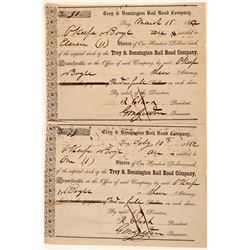 Troy & Bennington Rail Road Company.
Troy, March 18 1852
O'Keefe & Boyle are entitled to
Eleven (11) Shares of One Hundred Dollars each
of the capital stock of the Troy & Bennington Rail Road Company,
Transferable at the Office of said Company, by said O'Keefe
& Boyle their Attorney
By order of the Directors
President
Treasurer
Troy & Bennington Rail Road Company.
Troy, July 10th 1852
O'Keefe & Boyle are entitled to
One (1) Shares of One Hundred Dollars each
of the capital stock of the Troy & Bennington Rail Road Company,
Transferable at the Office of said Company, by said O'Keefe
& Boyle their Attorney
By order of the Directors
President
Treasurer